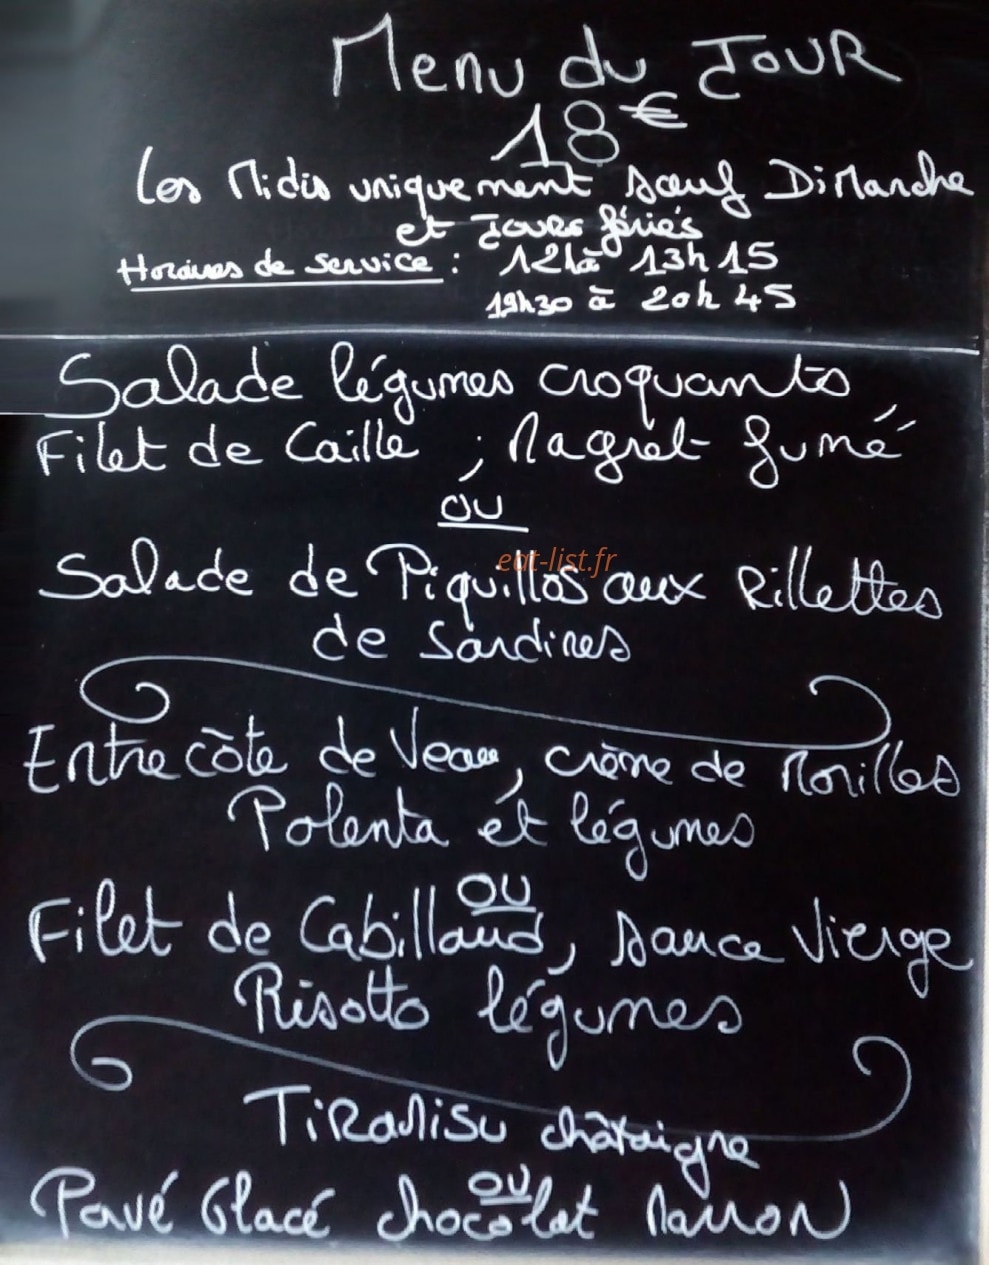 Menu du Jour
18€
Les Midis uniquement sauf Dimanche
et Jours fériés
Horaires de service : 12h à 13h15
19h30 à 20h45
Salade légumes croquants
Filet de Caille ; Magret fumé
ou
eat-list.fr
Salade de Piquillos aux Rillettes
de Sardines
Entrecôte de Veau, crème de Morilles
Polenta et légumes
ou
Filet de Cabillaud, sauce Vierge
Risotto légumes
Tiramisu châtaigne
ou
Pavé Glacé chocolat Marron